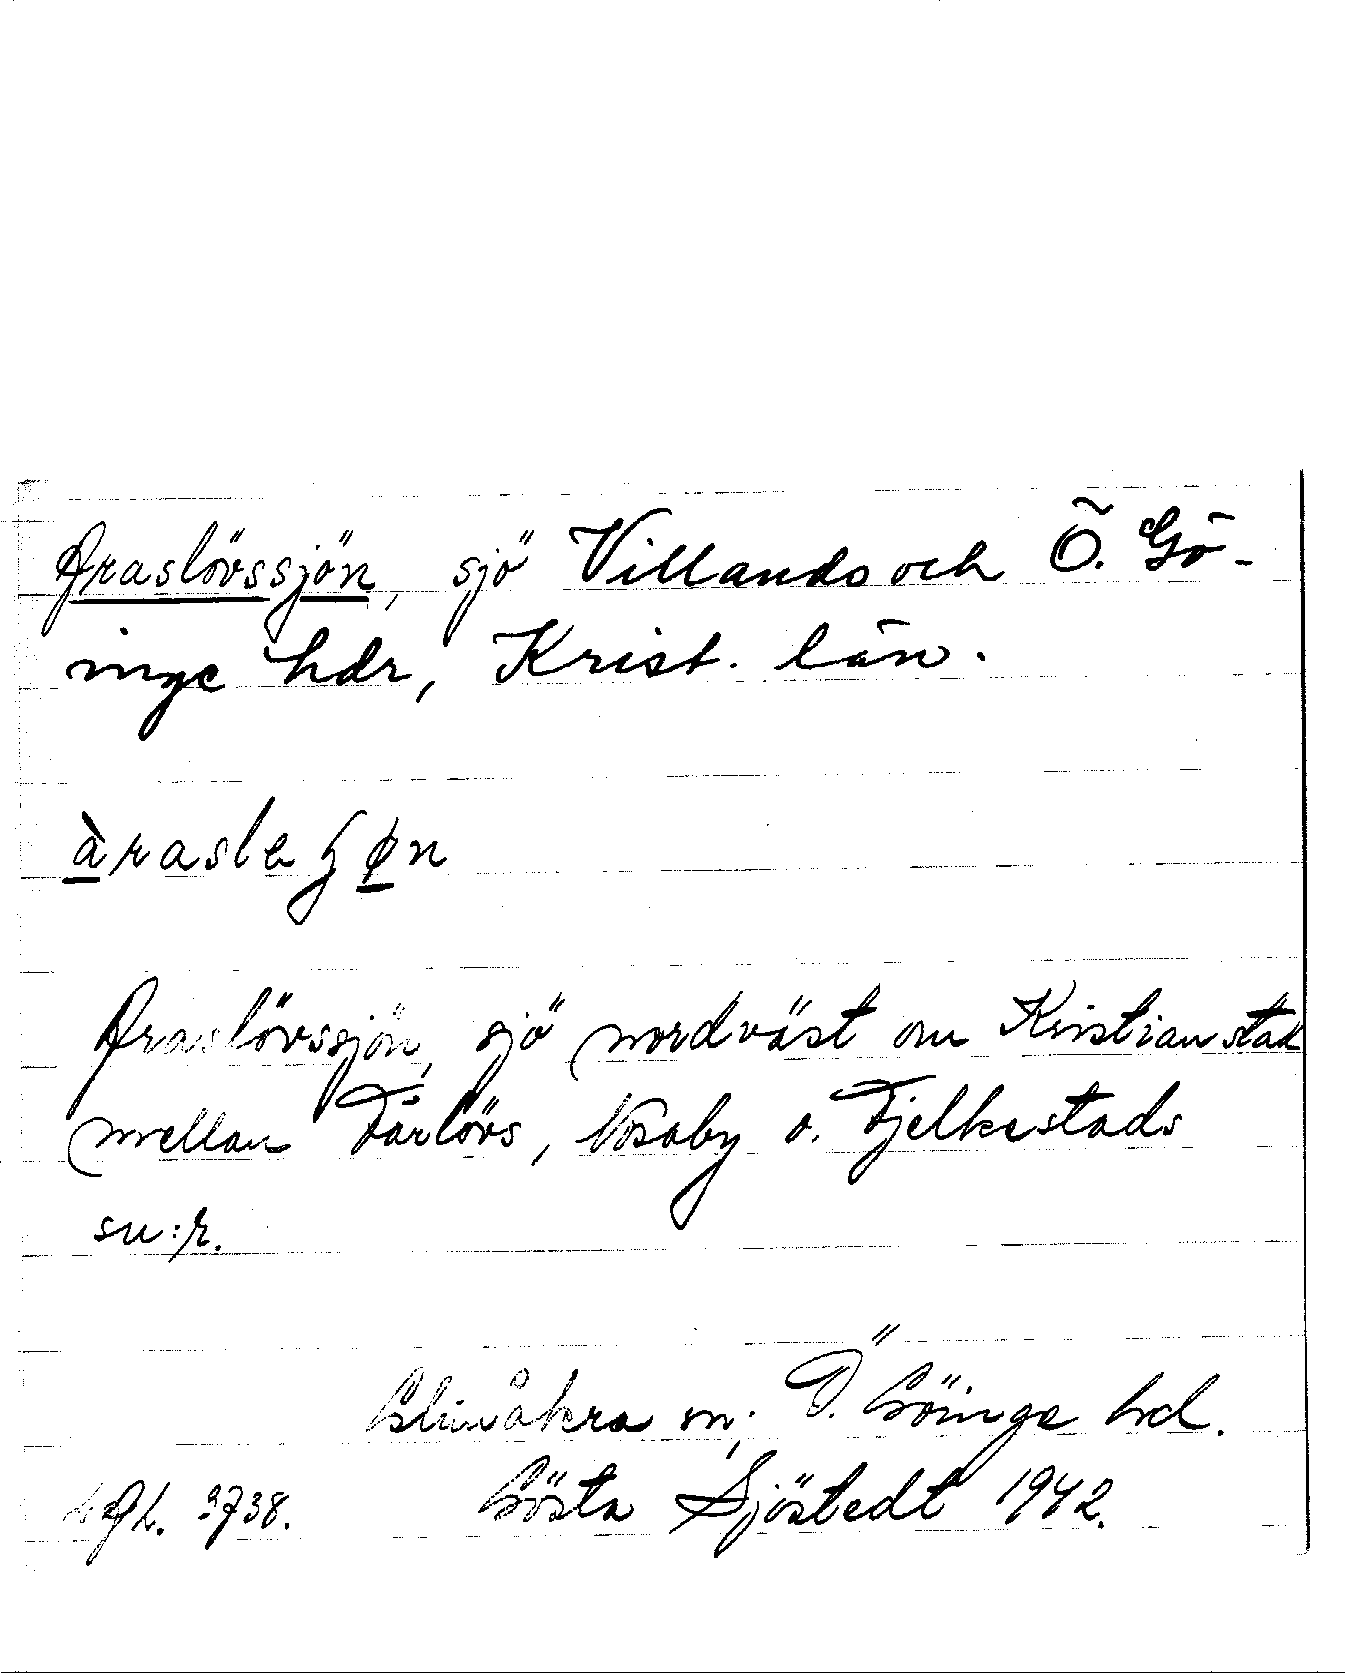 Araslövssjön, sjö Villands och Ö. Gö-
inge hdr, Krist. län.
àrasleʃøn
Araslövssjön, sjö nordväst om Kristianstad
mellan Färlövs, Nosaby o. Fjelkestads
sn:r.
Glimåkra sn; Ö. Göinge hd.
3738. Gösta Sjöstedt 1942.